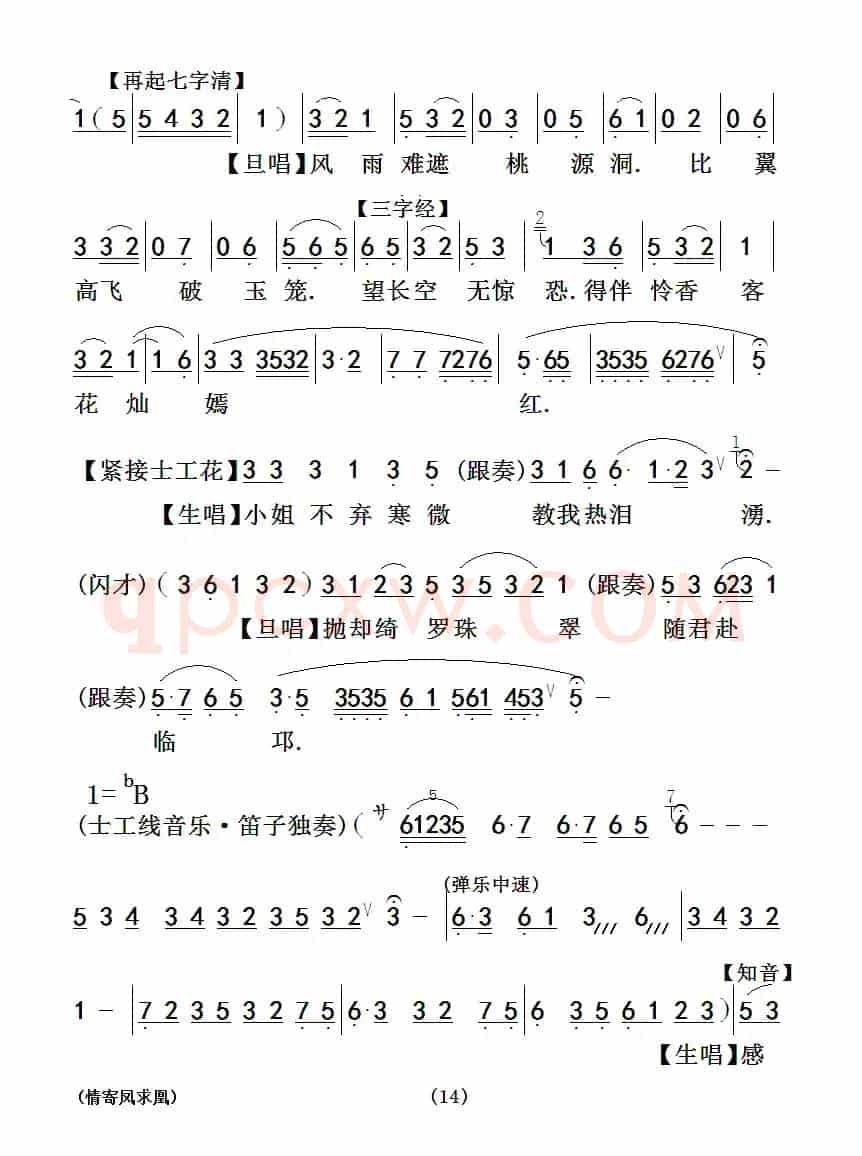 【再起七字清】
1 ( 5 | 5 4 3 2 | 1 ) | 3 2 1 | 5 3 2 | 0 3 | 0 5 | 6 1 | 0 2 | 0 6 |
【旦唱】风 雨 难遮 桃 源 洞. 比 翼
【三字经】
3 3 2 | 0 7 | 0 6 | 5 6 5 | 6 5 | 3 2 | 5 3 | 2 1 3 6 | 5 3 2 | 1
高飞 破 玉 笼. 望长空 无惊 恐.得伴 怜香 客
3 2 1 | 1 6 | 3 3 3532 | 3·2 | 7 7 7276 | 5·65 | 3535 6276 V | 5
花 灿 嫣 红.
【紧接士工花】3 3 3 1 3 5 (跟奏) 3 1 6 6· 1·2 3 V 1 2 -
【生唱】小姐 不 弃 寒 微 教我热泪 湧.
(闪才) ( 3 6 1 3 2 ) 3 1 2 3 5 3 5 3 2 1 (跟奏) 5 3 623 1
qpcxw.COM
【旦唱】抛却绮 罗珠 翠 随君赴
(跟奏) 5·7 6 5 3·5 3535 6 1 561 453 V 5 -
临 邛.
1= bB
(士工线音乐·笛子独奏) ( サ 5 61235 6·7 6·7 6 5 7 6 - - -
(弹乐中速)
5 3 4 3 4 3 2 3 5 3 2 V 3 - | 6·3 6 1 3 /// 6 /// | 3 4 3 2
【知音】
1 - | 7 2 3 5 3 2 7 5 | 6·3 3 2 7 5 | 6 3 5 6 1 2 3 ) | 5 3
【生唱】感
(情寄凤求凰) (14)